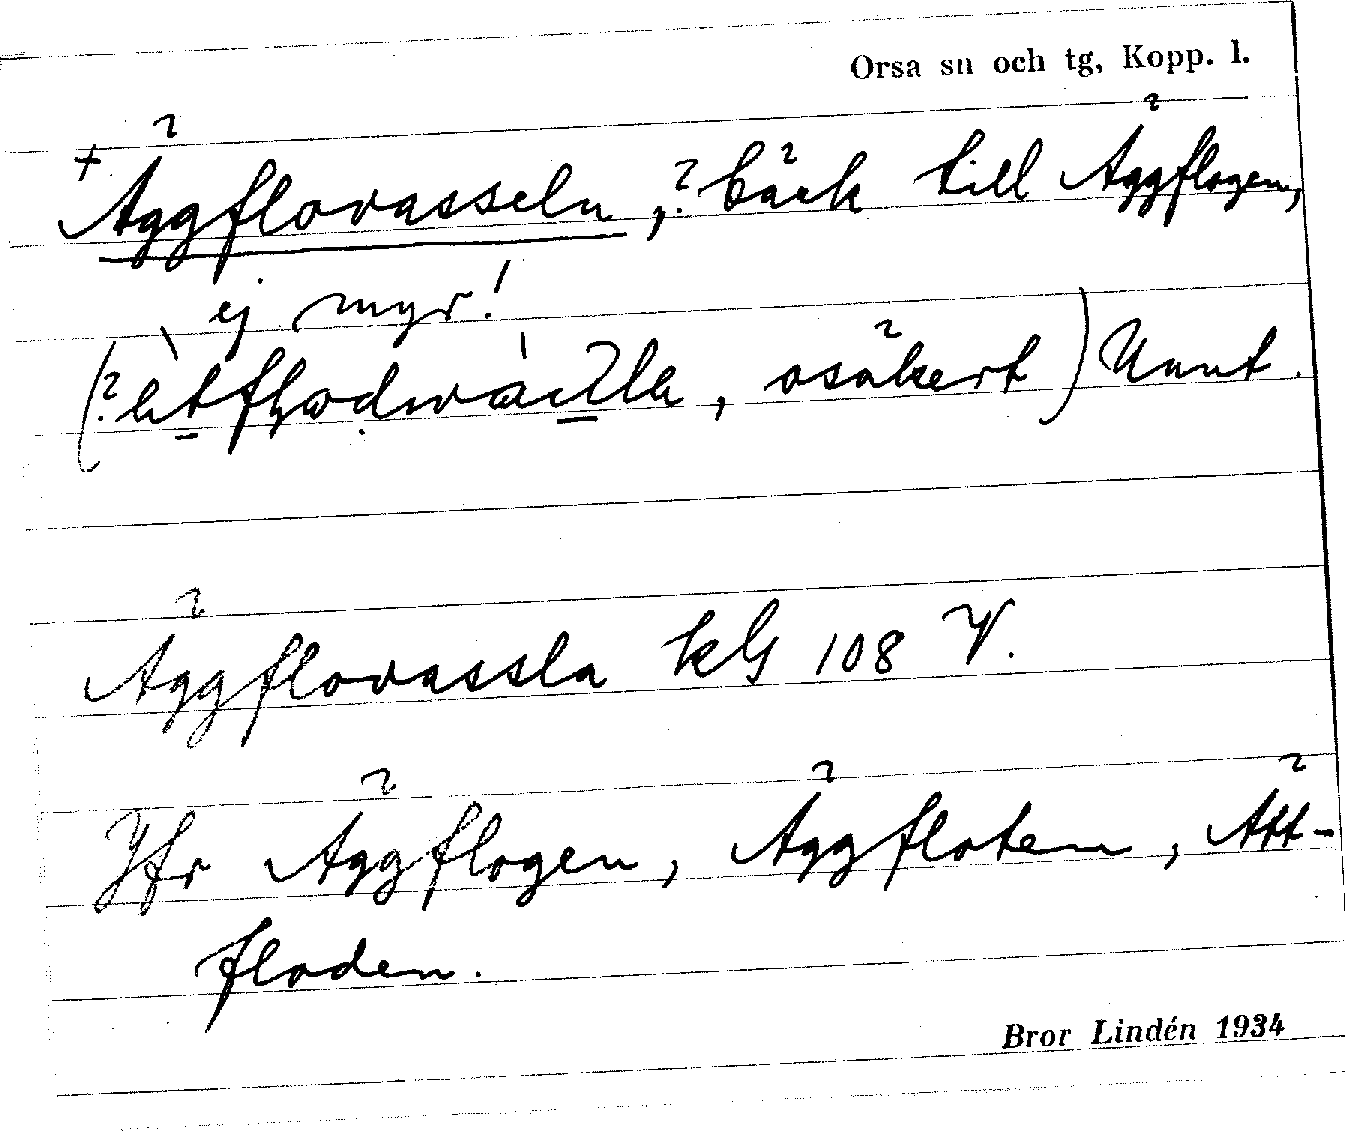 Orsa sn och tg, Kopp. l.
+Äggflovasseln, ? bäck till Äggflogen,
ej myr!
osäkert) Uunt.
Äggflovassla kG 108 V.
Jfr Äggflogen, Äggfloten, Ätt-
floden.
Bror Lindén 1934